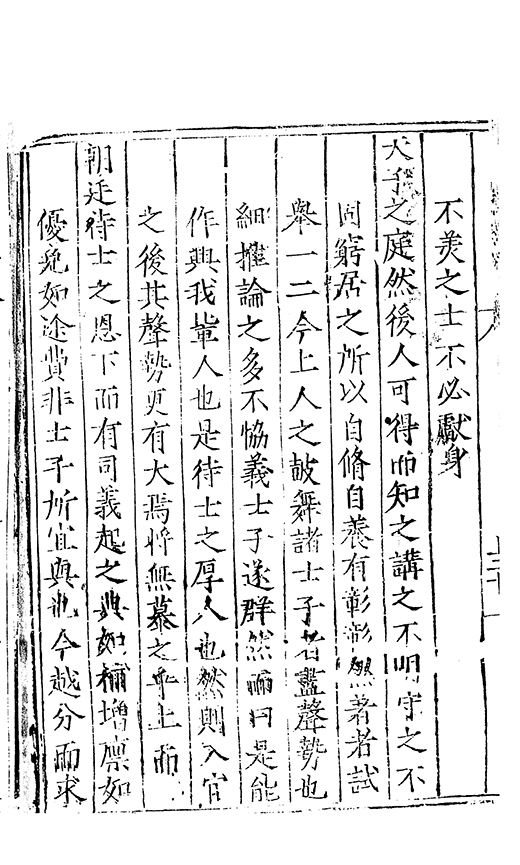 不羨之士不必獻身
天子之庭然後人可得而知之講之不明守之不
固窮居之所以自脩自養有彰彰然著者試
舉一二今上人之鼓舞諸士子者盡聲勢也
細推論之多不恊義士子遂群然而曰是能
作興我輩人也是待士之厚人也然則入官
之後其聲勢更有大焉將無慕之乎上而
朝廷待士之恩下而有司義起之典如補增廪如
優免如途費非士子所宜與也今越分而求